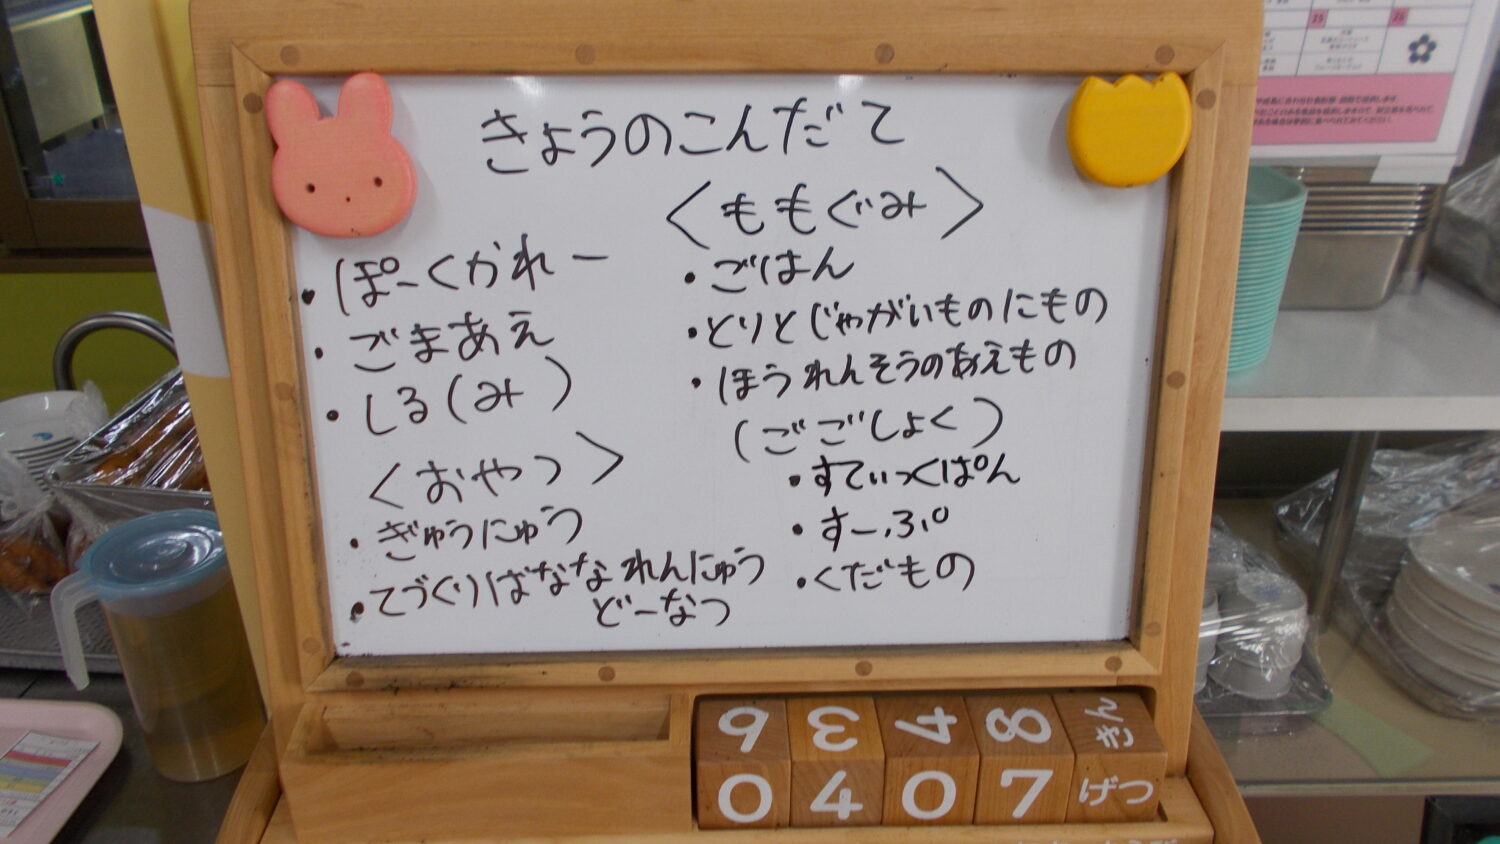 きょうのこんだて
・ぽーくかれー
・ごまあえ
・しる(み)
〈おやつ〉
・ぎゅうにゅう
・てづくりばななれんにゅう
どーなつ
〈ももぐみ〉
・ごはん
・とりとじゃがいものにもの
・ほうれんそうのあえもの
(ごごしょく)
・すてぃっくぱん
・すーぷ
・くだもの
9 3 4 8 きん
0 4 0 7 げつ
25
26